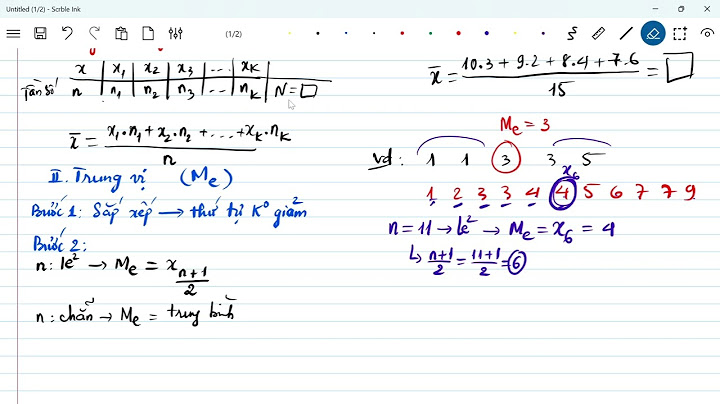 Untitled (1/2) - Scrble Ink
(1/2)
x x₁ x₂ x₃ ... x_K
Tần số n n₁ n₂ n₃ ... n_K N = □
x̄ = (x₁.n₁ + x₂.n₂ + ... + x_K.n_K) / n
II. Trung vị (Me)
Bước 1: Sắp xếp → thứ tự K° giảm
Bước 2:
n: lẻ → Me = x_(n+1)/2
n: chẵn → Me = trung bình
x̄ = (10.3 + 9.2 + 8.4 + 7.6) / 15 = □
Me = 3
vd: 1 1 3 3 5
x₆
1 2 3 3 4 4 5 6 7 7 9
n = 11 → lẻ → Me = x₆ = 4
↳ (n+1)/2 = (11+1)/2 = 6